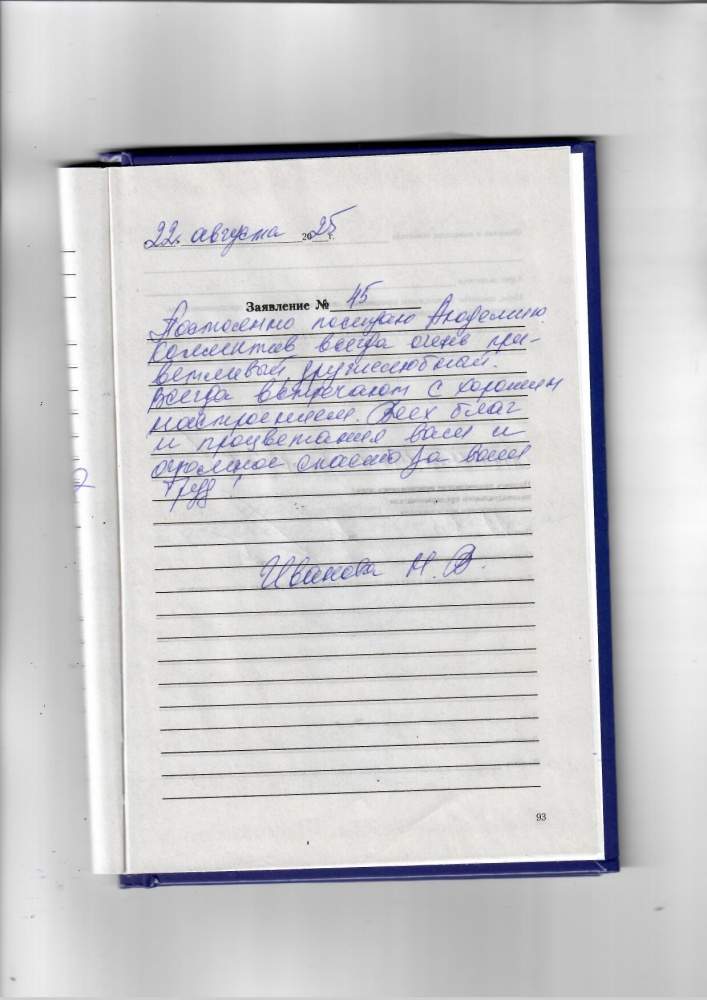 22. августа 2025 г.
Заявление № 45
Постоянно посещаю Академию.
Коллектив всегда очень при-
ветливый, дружелюбный.
Всегда встречают с хорошим
настроением. Всех благ
и процветания вам и
огромное спасибо за ваш
труд!
Иванова Н. В.
93